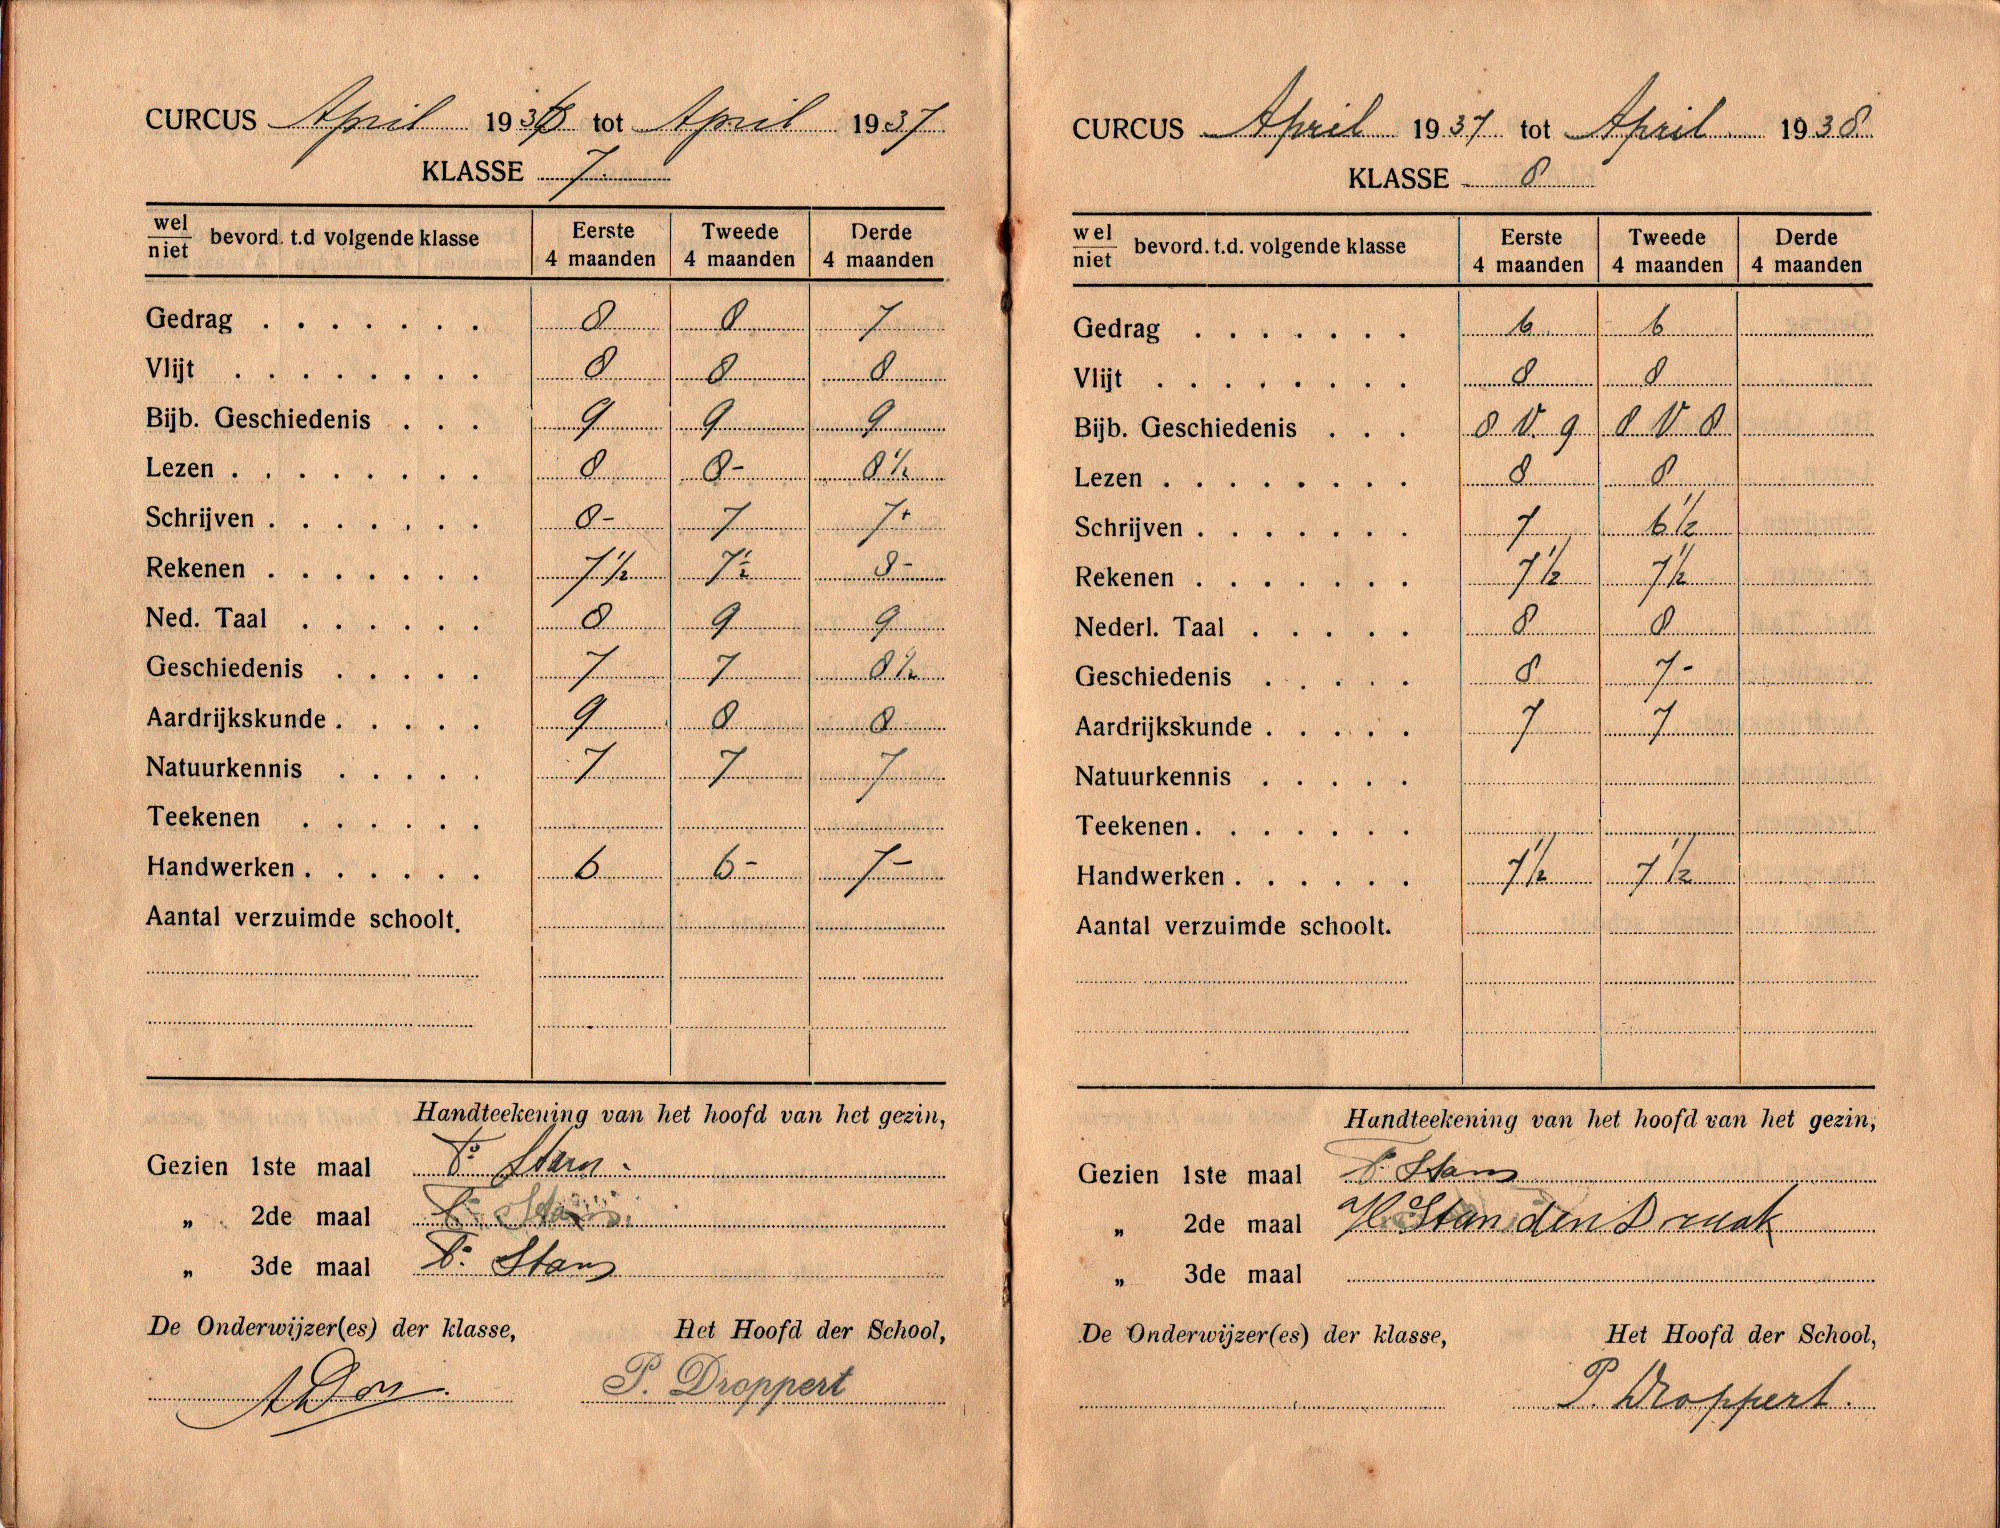 CURCUS April 1936 tot April 1937
KLASSE 7
wel
niet bevord. t.d volgende klasse
Eerste 4 maanden Tweede 4 maanden Derde 4 maanden
Gedrag . . . . . . . 8 8 7
Vlijt . . . . . . . . 8 8 8
Bijb. Geschiedenis . . . 9 9 9
Lezen . . . . . . . . 8 8- 8½
Schrijven . . . . . . . 8- 7 7+
Rekenen . . . . . . . 7½ 7½ 8-
Ned. Taal . . . . . . 8 9 9
Geschiedenis . . . . . 7 7 8½
Aardrijkskunde . . . . . 9 8 8
Natuurkennis . . . . . 7 7 7
Teekenen . . . . . .
Handwerken . . . . . . 6 6- 7-
Aantal verzuimde schoolt.
Handteekening van het hoofd van het gezin,
Gezien 1ste maal Stam
„ 2de maal
„ 3de maal Stam
De Onderwijzer(es) der klasse, Het Hoofd der School,
P. Droppert
CURCUS April 1937 tot April 1938
KLASSE 8
wel
niet bevord. t.d. volgende klasse
Eerste 4 maanden Tweede 4 maanden Derde 4 maanden
Gedrag . . . . . . . 6 6
Vlijt . . . . . . . . 8 8
Bijb. Geschiedenis . . . 8 V. 9 8 V. 8
Lezen . . . . . . . . 8 8
Schrijven . . . . . . . 7 6½
Rekenen . . . . . . . 7½ 7½
Nederl. Taal . . . . . 8 8
Geschiedenis . . . . . 8 7-
Aardrijkskunde . . . . . 7 7
Natuurkennis . . . . .
Teekenen . . . . . . .
Handwerken . . . . . . 7½ 7½
Aantal verzuimde schoolt.
Handteekening van het hoofd van het gezin,
Gezien 1ste maal Stam
„ 2de maal
„ 3de maal
De Onderwijzer(es) der klasse, Het Hoofd der School,
P. Droppert.